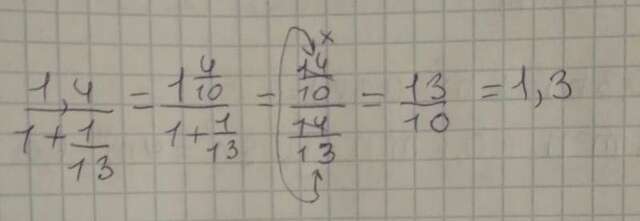 1,4/(1+1/13) = 1 4/10/(1+1/13) = (14/10)/(14/13) = 13/10 = 1,3
×